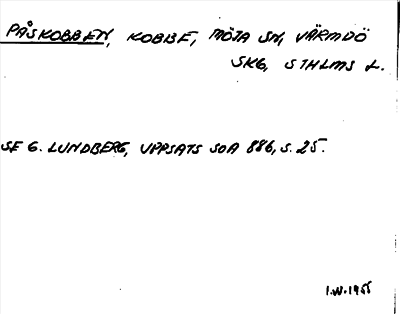 PÅSKOBBEN, KOBBE, MÖJA SN, VÄRMDÖ
SKG, STHLMS L.
SE G. LUNDBERG, UPPSATS SOA 886, S. 25.
I.W. 1955